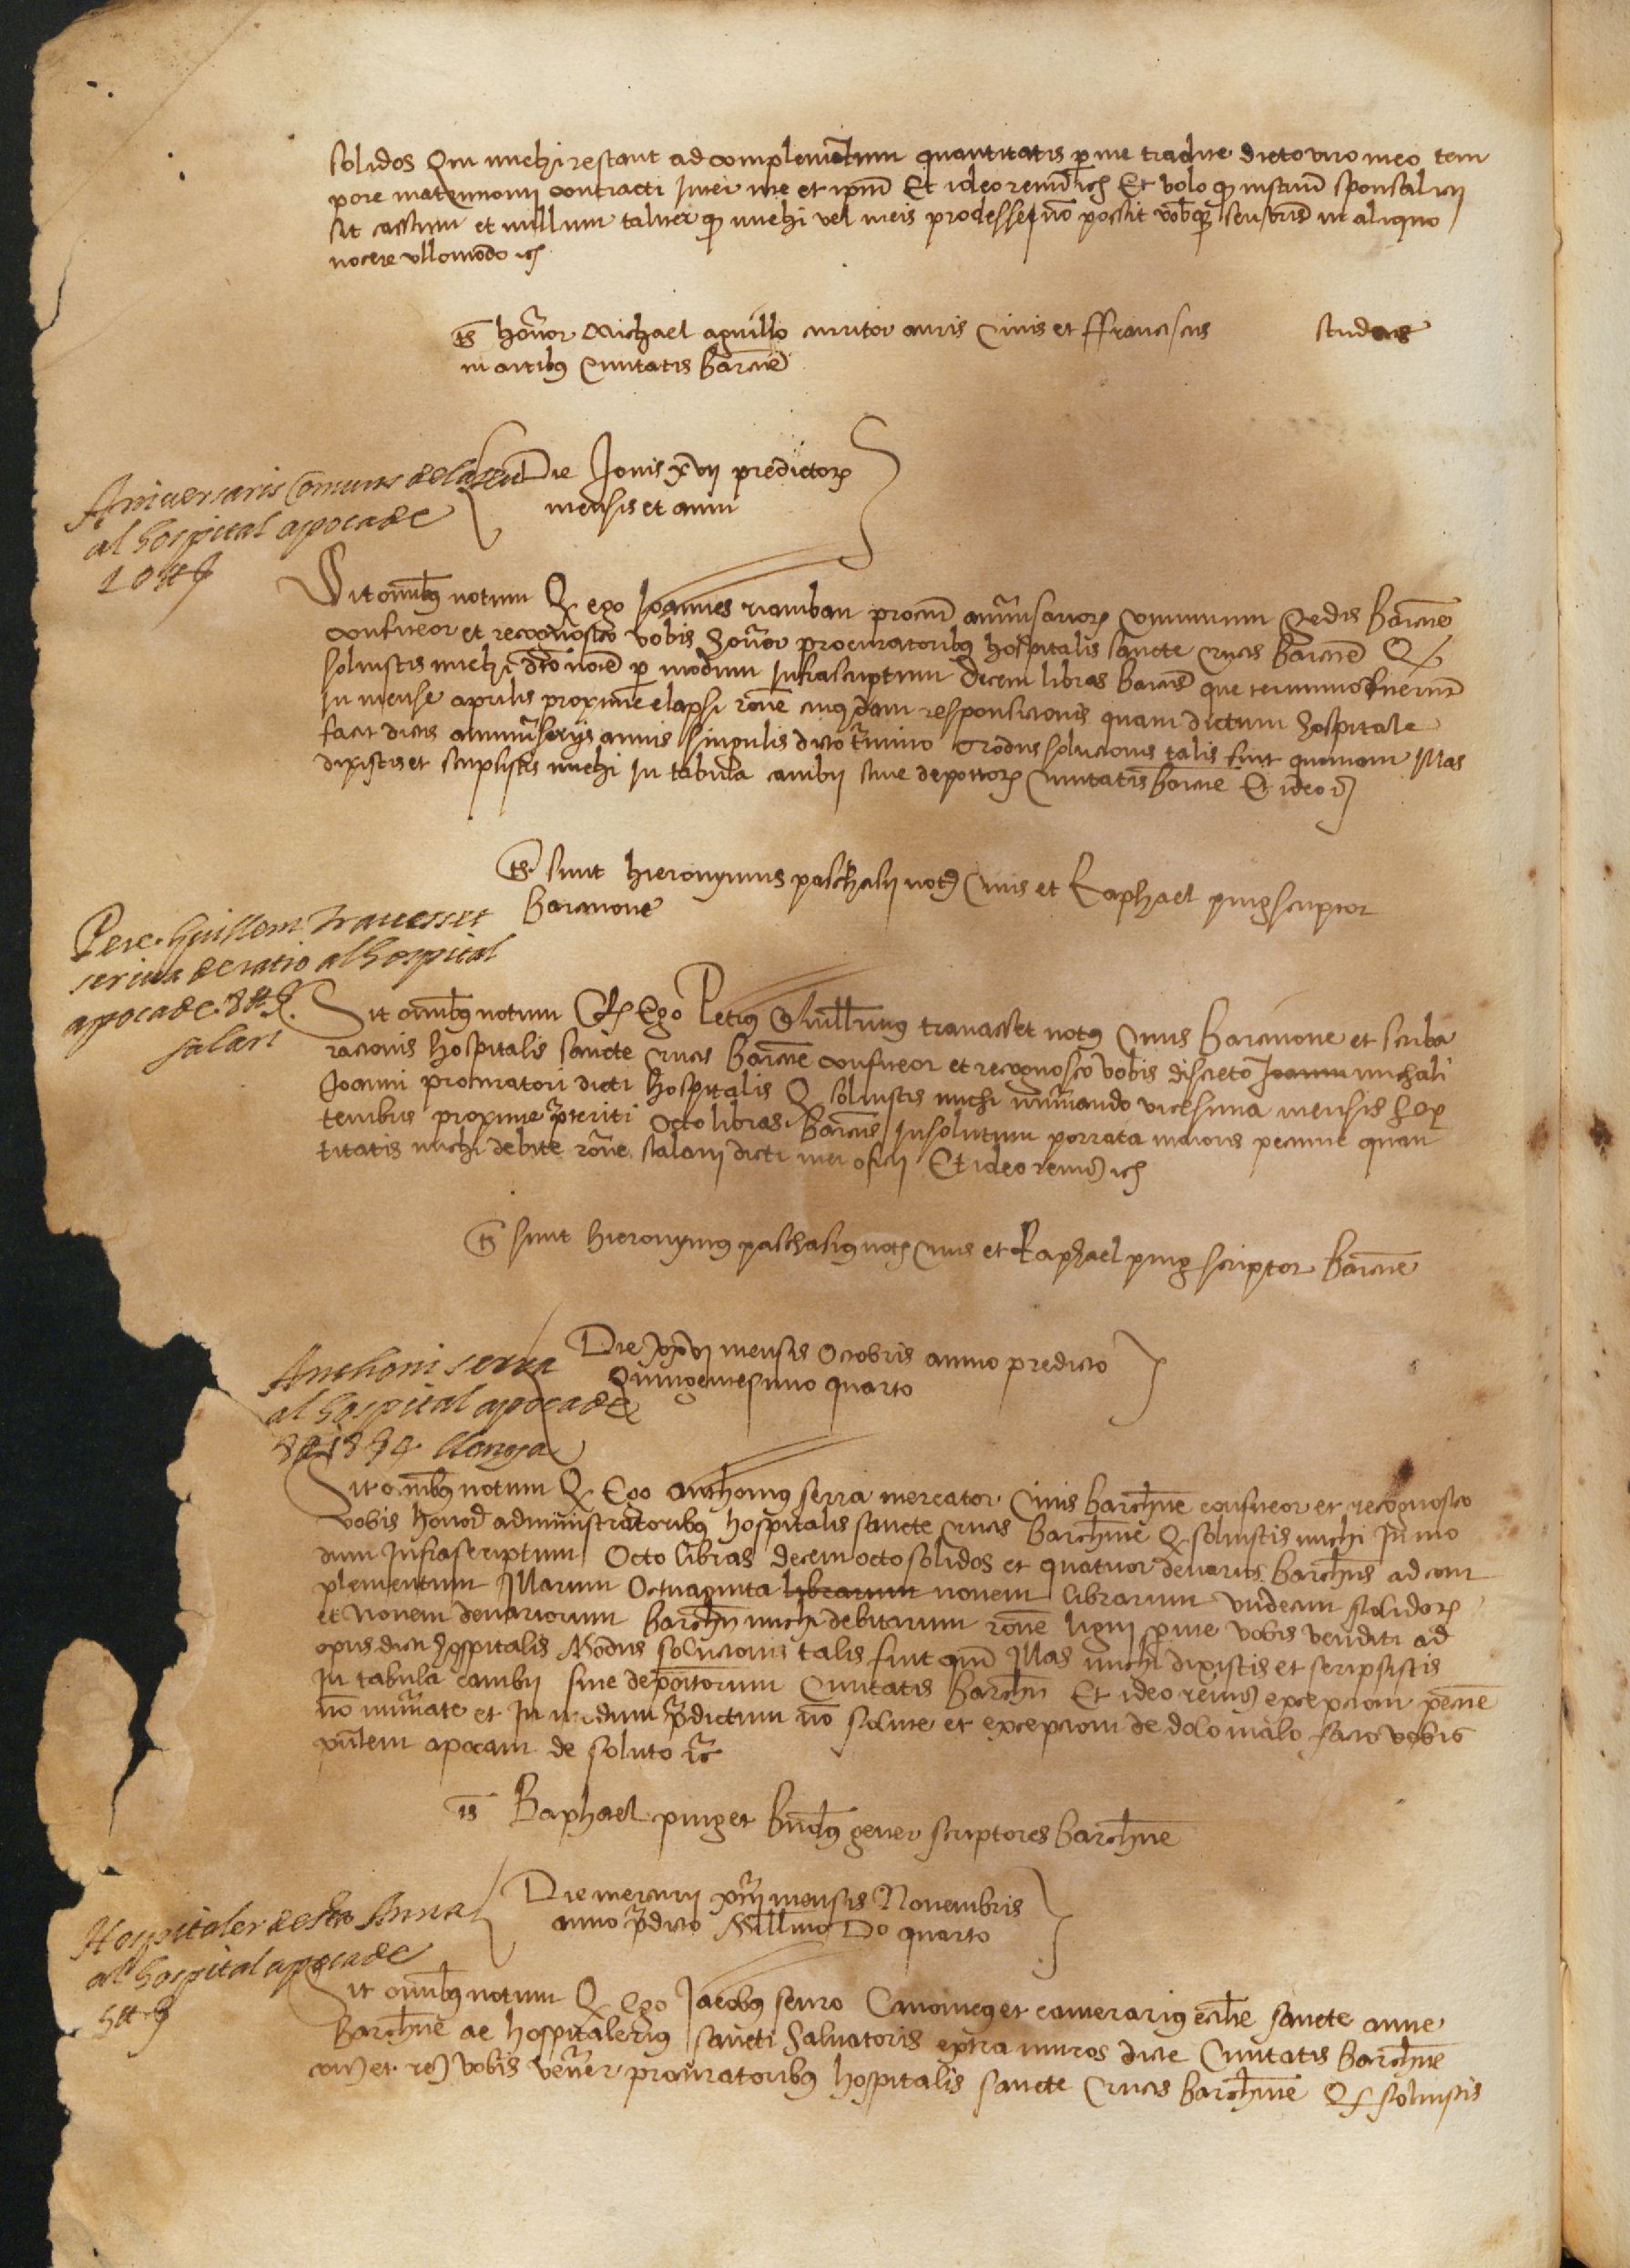 solidos qui michi restant ad complementum quantitatis per me tradite dicto viro meo tem
pore matrimonij contracti inter me et ipm Et ideo renun ic Et volo q instrum sponsalicij
sit cassum et nullum taliter q michi vel meis prodesse no possit vobisq seu vris in aliquo
nocere vllomodo ic
ts honor Michael aguillo auris Ciuis et ffranciscus studens
in artibus Ciuitatis barcne
Aniuersaris Comuns de la Seu
al hospital apoca de
10 ll
Die Jouis xvij predictor
mensis et anni
Sit omibus notum Q ego Joannes procur anniuersarior comunium Sedis barcne
confiteor et recognosco vobis honor procuratoribus hospitalis sancte crucis barcne Q
soluistis michi dicto noie per modum infrascriptum decem libras barcne que termino fuerunt
in mense aprilis proxime elapsi rone cuiusdam responsionis quam dictum hospitale
facit dictis anniuersarijs annis singulis dicto termino Modus solucionis talis fuit quoniam illas
dixistis et scripsistis michi in tabula cambij siue depositor Ciuitatis barcne Et ideo ic
ts sunt hieronymus paschasij not Ciuis et Raphael puig scriptor
barcinone
Pere Guillem Trauesset
scriua de ratio al hospital
apoca de 8 ll
salari
Sit omibus notum Q Ego Petrus Guillmus trauasset notus Ciuis barcinone et scriba
racionis hospitalis sancte crucis barcne confiteor et recognosco vobis discreto Joanni michali
Joanni procuratori dicti hospitalis Q soluistis michi numerando vicesima mensis Sep
tembris proxime preteriti octo libras barcne in solutum porrata maioris pecunie quan
titatis michi debite rone salarij dicti mei oficij Et ideo renun ic
ts sunt hieronymus paschasius not Ciuis et Raphael puig scriptor barcne
Anthoni serra
al hospital apoca de
8 ll 18 s 4 llenya
Die mensis Octobris anno predicto
Quingentesimo quarto
Sit omibus notum Q Ego anthonius serra mercator Ciuis barchne confiteor et recognosco
vobis honor administratoribus hospitalis sancte crucis barchne Q soluistis michi in mo
dum infrascriptum Octo libras decem octo solidos et quatuor denarios barchns ad com
plementum illarum Octuaginta librarum nouem librarum vndecim solidor
et nouem denariorum barchn michi debitarum rone ligni per me vobis venditi ad
opus dicti hospitalis Modus solucionis talis fuit qm illas michi dixistis et scripsistis
in tabula cambij siue depoitorum Ciuitatis barchn Et ideo renun excepcioni pecune
no numerate et in modum predictum no solute et excepcioni de dolo malo facio vobis
pntem apocam de soluto ic
ts Raphael puig et gener scriptores barchne
Hospitaler de Sta Anna
al hospital apoca de
5 ll
Die mercurij xiij mensis Nouembris
anno predicto Millmo Do quarto
Sit omibus notum Q ego Jacobus Canonicus et camerarius ecclie sancte anne
barchne ac hospitalerius sancti Saluatoris extra muros dicte Ciuitatis barchne
con et re vobis vener procuratoribus hospitalis sancte crucis barchne Q soluistis